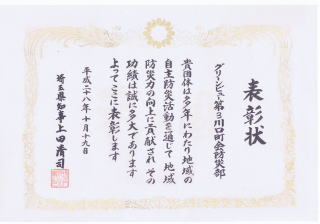 表彰状
グリーンビュー第3川口町会防災部
貴団体は多年にわたり地域の
自主防災活動を通じて地域
防災力の向上に貢献され その
功績は誠に多大であります
よってここに表彰します
平成二十八年十月十九日
埼玉県知事上田清司